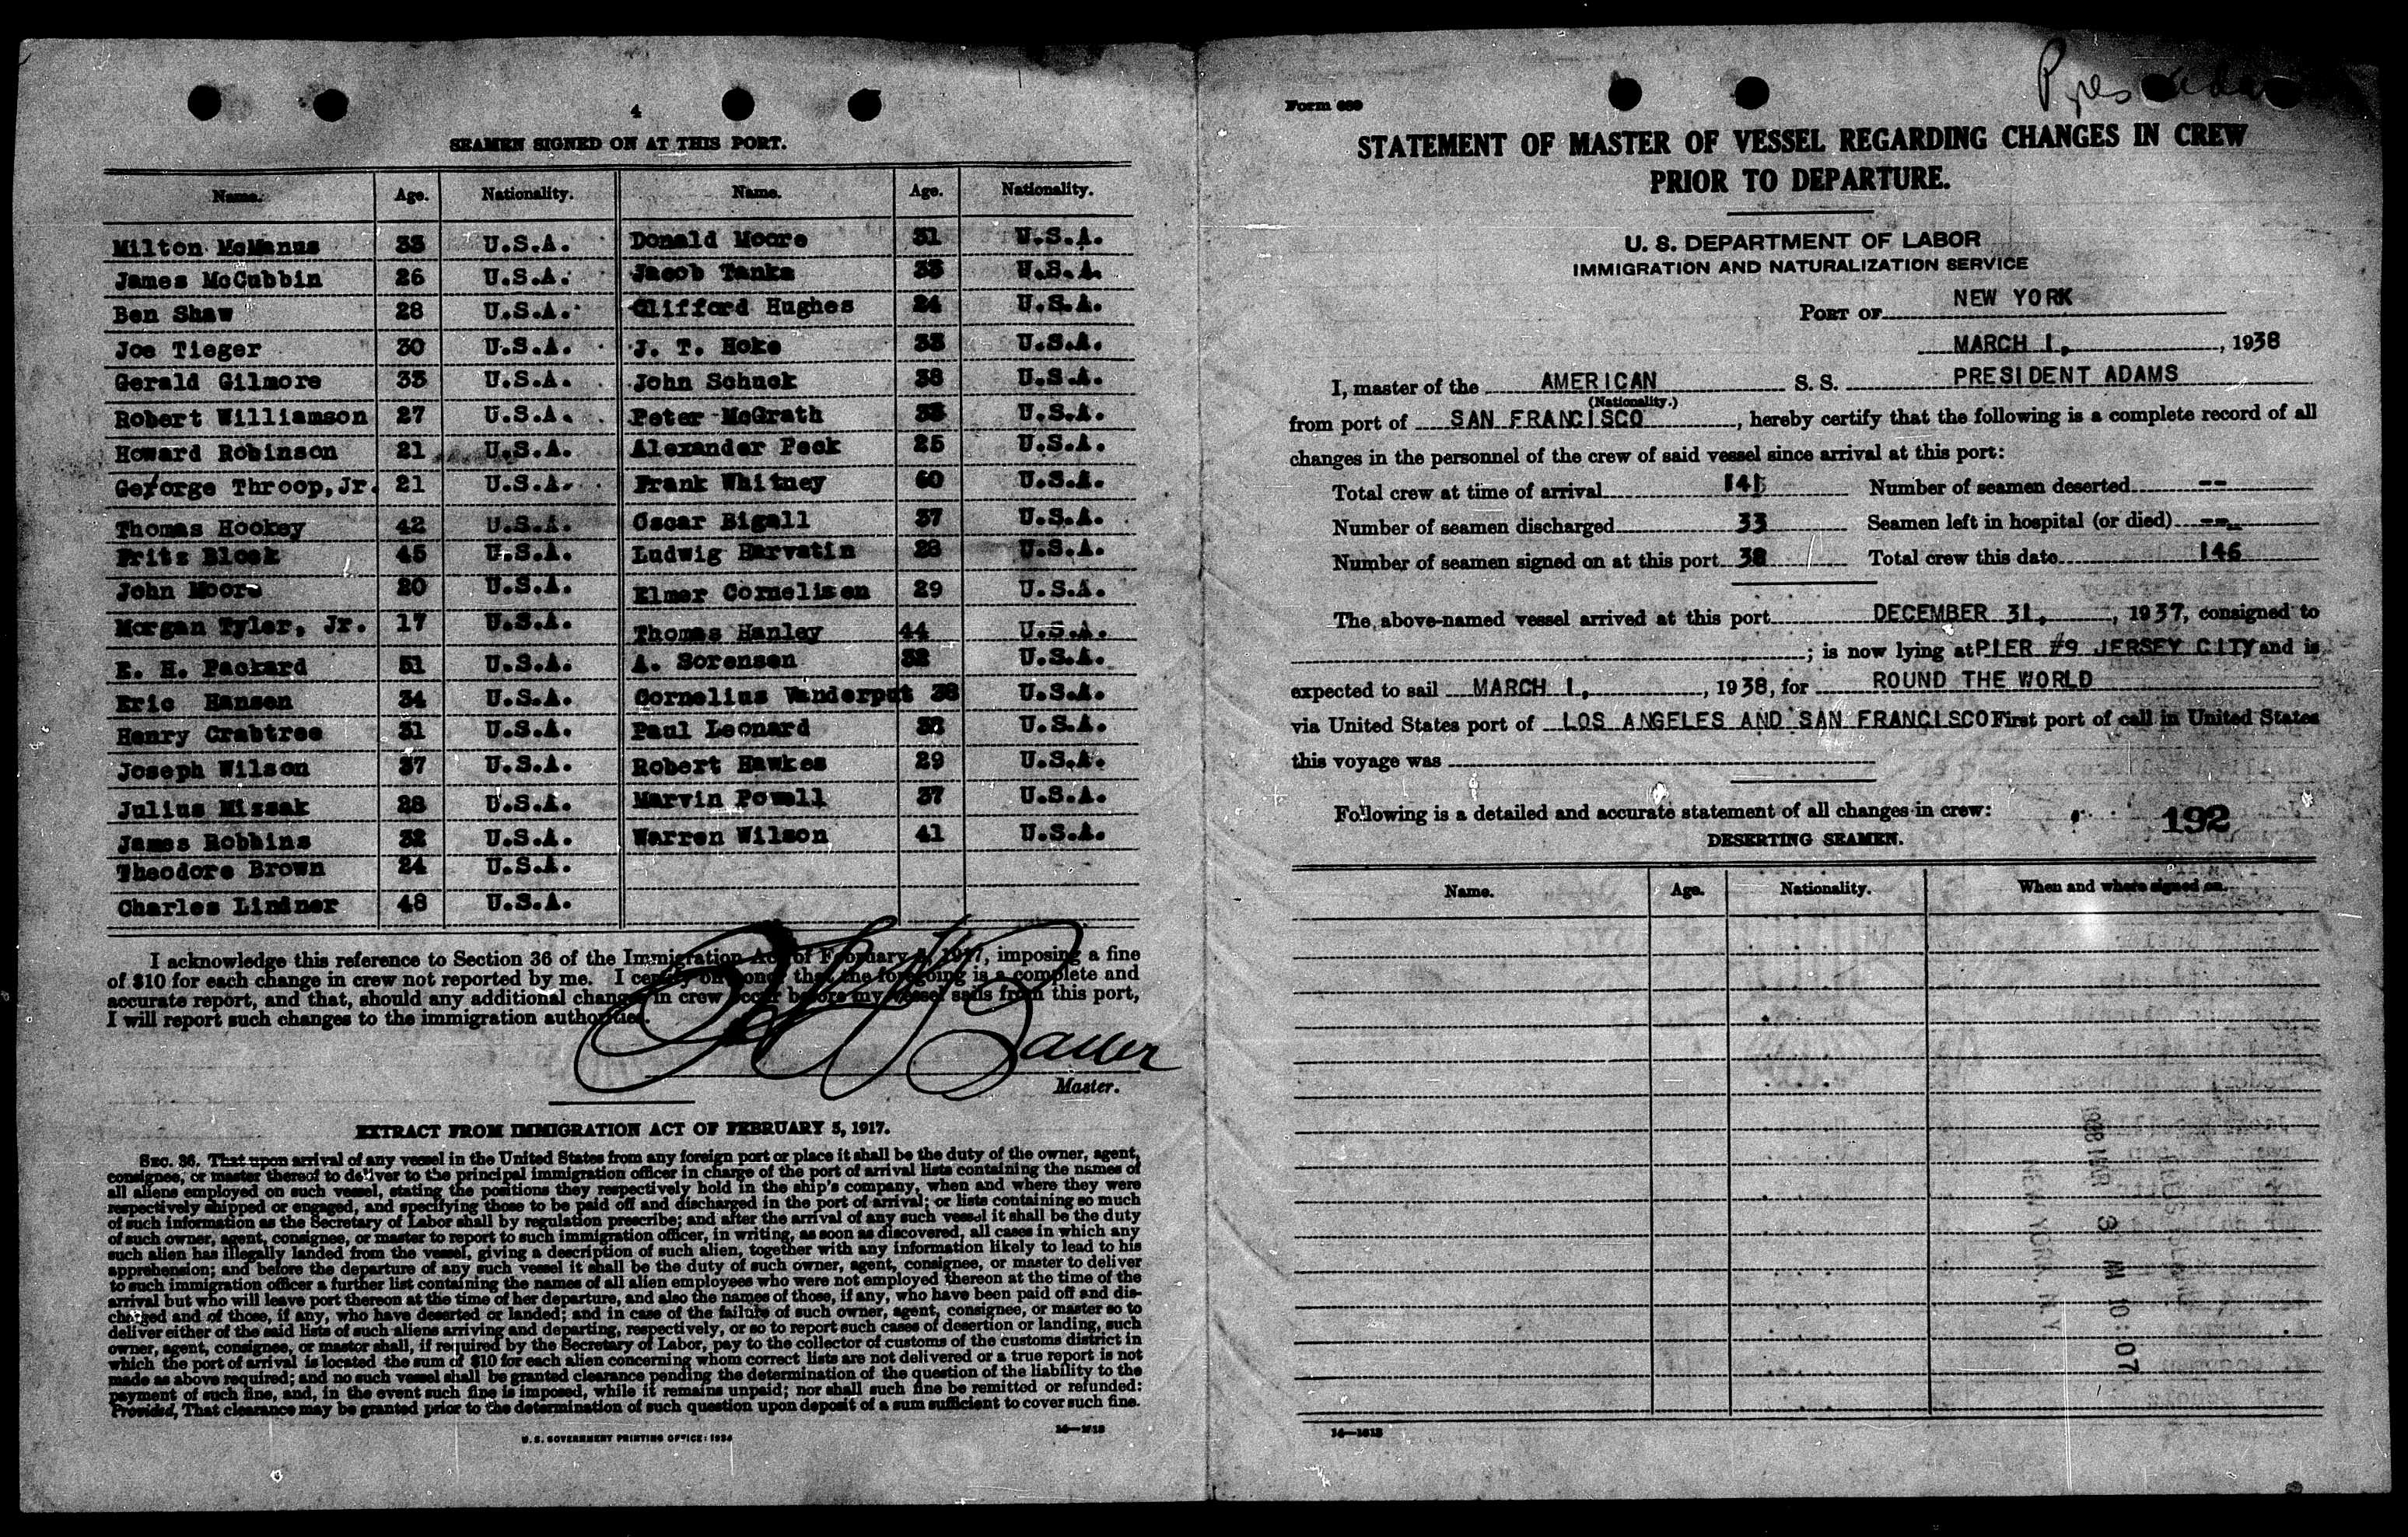 4
SEAMEN SIGNED ON AT THIS PORT.
Name. Age. Nationality. Name. Age. Nationality.
Milton McManus 33 U.S.A. Donald Moore 31 U.S.A.
James McCubbin 26 U.S.A. Jacob Tanks 33 U.S.A.
Ben Shaw 28 U.S.A. Clifford Hughes 24 U.S.A.
Joe Tieger 30 U.S.A. J. T. Hoke 33 U.S.A.
Gerald Gilmore 33 U.S.A. John Schuck 38 U.S.A.
Robert Williamson 27 U.S.A. Peter McGrath 33 U.S.A.
Howard Robinson 21 U.S.A. Alexander Peck 25 U.S.A.
Ge/orge Throop, Jr. 21 U.S.A. Frank Whitney 60 U.S.A.
Thomas Hookey 42 U.S.A. Oscar Bigall 37 U.S.A.
Frits Bloek 45 U.S.A. Ludwig Harvatin 28 U.S.A.
John Moore 20 U.S.A. Elmer Cornelisen 29 U.S.A.
Morgan Tyler, Jr. 17 U.S.A. Thomas Hanley 44 U.S.A.
E. H. Packard 51 U.S.A. A. Sorensen 32 U.S.A.
Eric Hansen 34 U.S.A. Cornelius Vanderput 38 U.S.A.
Henry Crabtree 31 U.S.A. Paul Leonard U.S.A.
Joseph Wilson 37 U.S.A. Robert Hawkes 29 U.S.A.
Julius Missak 28 U.S.A. Marvin Powell 37 U.S.A.
James Robbins 32 U.S.A. Warren Wilson 41 U.S.A.
Theodore Brown 24 U.S.A.
Charles Lindner 48 U.S.A.
I acknowledge this reference to Section 36 of the Immigration Act of February 5, 1917, imposing a fine
of $10 for each change in crew not reported by me. I certify on honor that the foregoing is a complete and
accurate report, and that, should any additional change in crew occur before my vessel sails from this port,
I will report such changes to the immigration authorities.
Master.
EXTRACT FROM IMMIGRATION ACT OF FEBRUARY 5, 1917.
SEC. 36. That upon arrival of any vessel in the United States from any foreign port or place it shall be the duty of the owner, agent,
consignee, or master thereof to deliver to the principal immigration officer in charge of the port of arrival lists containing the names of
all aliens employed on such vessel, stating the positions they respectively hold in the ship's company, when and where they were
respectively shipped or engaged, and specifying those to be paid off and discharged in the port of arrival; or lists containing so much
of such information as the Secretary of Labor shall by regulation prescribe; and after the arrival of any such vessel it shall be the duty
of such owner, agent, consignee, or master to report to such immigration officer, in writing, as soon as discovered, all cases in which any
such alien has illegally landed from the vessel, giving a description of such alien, together with any information likely to lead to his
apprehension; and before the departure of any such vessel it shall be the duty of such owner, agent, consignee, or master to deliver
to such immigration officer a further list containing the names of all alien employees who were not employed thereon at the time of the
arrival but who will leave port thereon at the time of her departure, and also the names of those, if any, who have been paid off and dis-
charged and of those, if any, who have deserted or landed; and in case of the failure of such owner, agent, consignee, or master so to
deliver either of the said lists of such aliens arriving and departing, respectively, or so to report such cases of desertion or landing, such
owner, agent, consignee, or master shall, if required by the Secretary of Labor, pay to the collector of customs of the customs district in
which the port of arrival is located the sum of $10 for each alien concerning whom correct lists are not delivered or a true report is not
made as above required; and no such vessel shall be granted clearance pending the determination of the question of the liability to the
payment of such fine, and, in the event such fine is imposed, while it remains unpaid; nor shall such fine be remitted or refunded:
Provided, That clearance may be granted prior to the determination of such question upon deposit of a sum sufficient to cover such fine.
U. S. GOVERNMENT PRINTING OFFICE: 1934
Pres Adams
Form 689
STATEMENT OF MASTER OF VESSEL REGARDING CHANGES IN CREW
PRIOR TO DEPARTURE.
U. S. DEPARTMENT OF LABOR
IMMIGRATION AND NATURALIZATION SERVICE
PORT OF NEW YORK
MARCH 1, , 1938
I, master of the AMERICAN S. S. PRESIDENT ADAMS
(Nationality.)
from port of SAN FRANCISCO , hereby certify that the following is a complete record of all
changes in the personnel of the crew of said vessel since arrival at this port:
Total crew at time of arrival 141 Number of seamen deserted --
Number of seamen discharged 33 Seamen left in hospital (or died) --
Number of seamen signed on at this port 38 Total crew this date 146
The above-named vessel arrived at this port DECEMBER 31, , 1937, consigned to
; is now lying at PIER #9 JERSEY CITY and is
expected to sail MARCH 1, , 1938, for ROUND THE WORLD
via United States port of LOS ANGELES AND SAN FRANCISCO First port of call in United States
this voyage was
Following is a detailed and accurate statement of all changes in crew:
192
DESERTING SEAMEN.
Name. Age. Nationality. When and where signed on.
1938 MAR 3 AM 10:07
NEW YORK, N.Y.